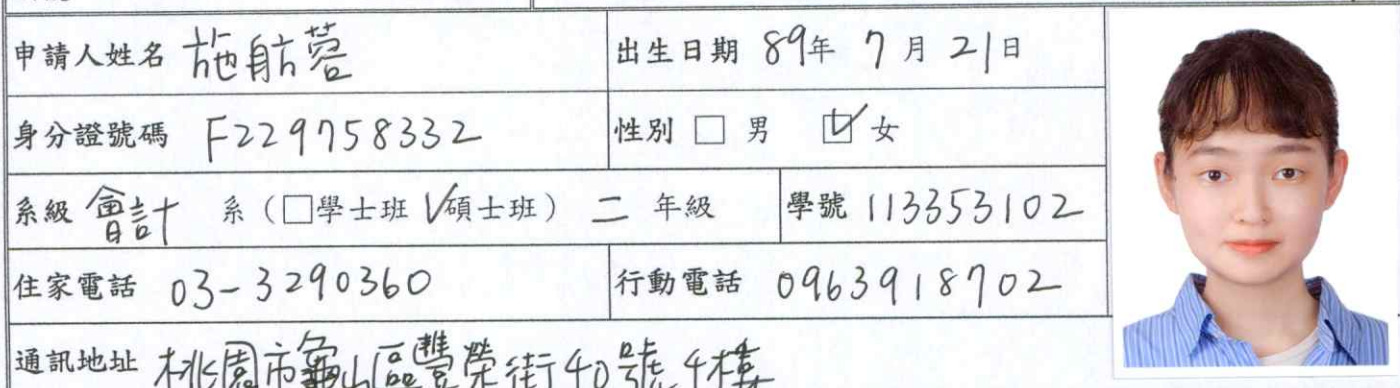 申請人姓名 施航蓉 出生日期 89年 7月 21日
身分證號碼 F229758332 性別 □ 男 ☑ 女
系級 會計 系（□學士班 ✓碩士班） 二 年級 學號 113353102
住家電話 03-3290360 行動電話 0963918702
通訊地址 桃園市龜山區豐榮街40號4樓